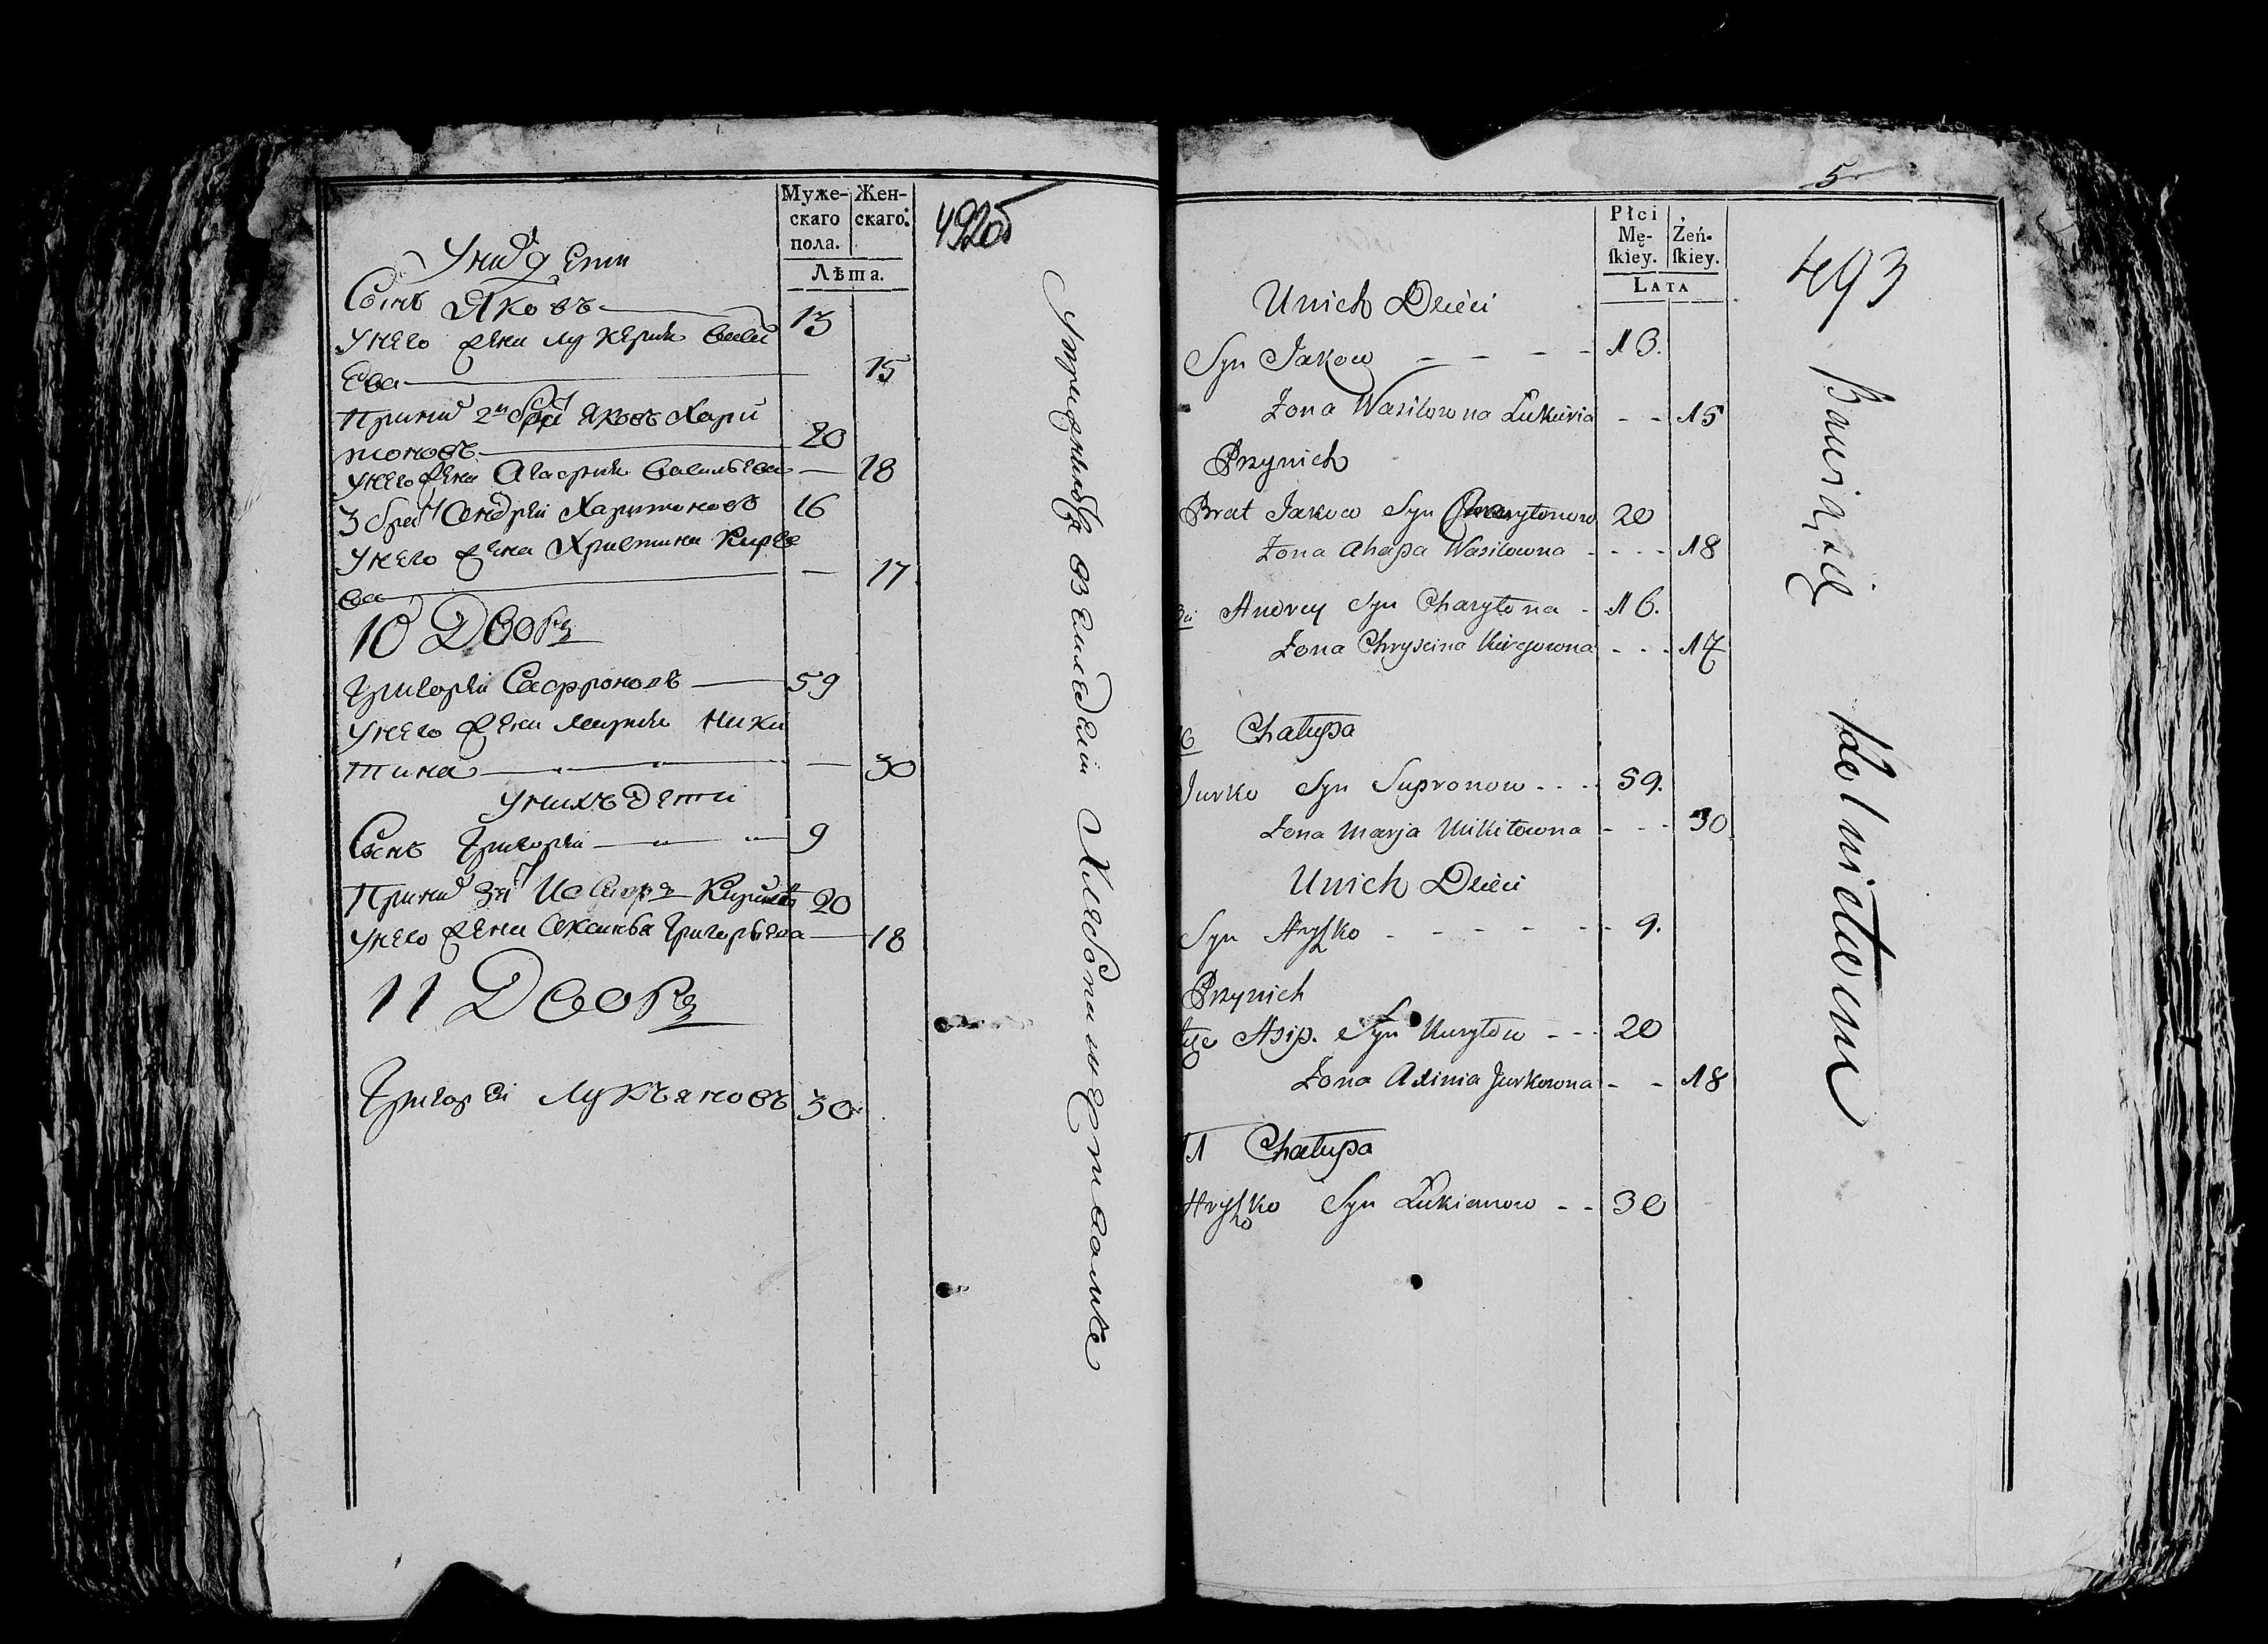 Муже-
скаго
пола.
Жен-
скаго.
Лѣта.
492об
У них дети
Сынъ Яковъ 13
У него жена Лукерия Васи
ева 15
При них 2й брат Яковъ Хари
тоновъ 20
У него жена Агафия Васильева 18
3 брат Андрей Харитоновъ 16
У него жена Христина Кирее
ва 17
10 Дворъ
Григорей Сафроновъ 59
У него жена Мария Ники
тина 30
У нихъ дети
Сынъ Григорей 9
При них зят 20
У него жена Аксинья Григорьева 18
11 Дворъ
Григорей Лукъяновъ 30
Упражняюбся в земледелии Хлебопашественномъ
5
Płci
Mę-
ſkiey.
Zeń-
ſkiey.
LATA
493
Unich Dzieci
Syn Jakow - - - - 13.
Żona Wasilowna Łukiria - - 15
Przynich
Brat Jakow Syn Charytonow 20
Żona Ahapa Wasilowna - - - - 18
3ci Andrey Syn Charytona - 16.
Żona Chryścina Kirejowna - - - 17
10 Chałupa
Jurko Syn Supronow - - - - 59.
Żona Marja Mikitowna - - - 30
Unich Dzieci
Syn Hryszko - - - - - - 9.
Przynich
Asip. Syn Kuryłow - - - 20
Żona Axinia Jurkowna - - 18
11 Chałupa
Hryszko Syn Łukianow - - 30
Bawią się Rolnictwem